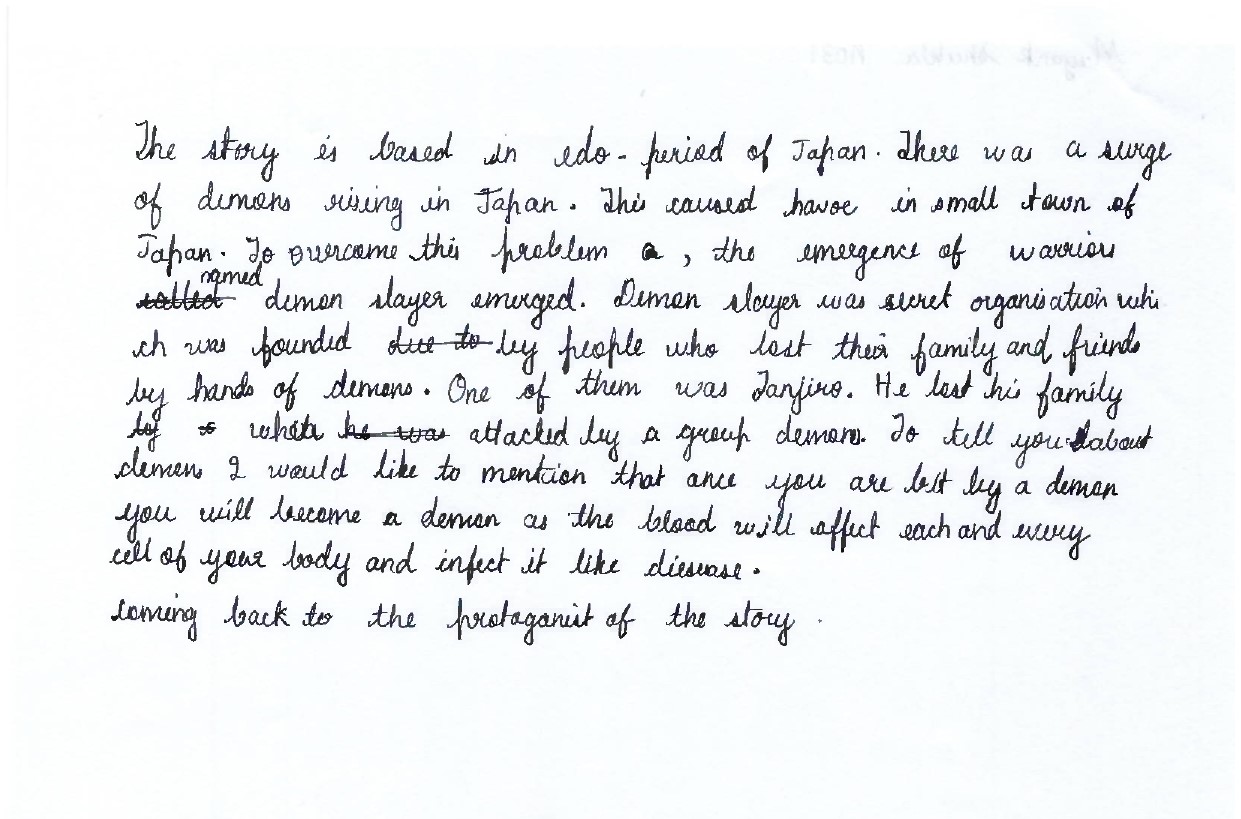 The story is based in edo-period of Japan. There was a surge
of demons rising in Japan. This caused havoc in small town of
Japan. To overcome this problem a, the emergence of warriors
named
called demon slayer emerged. Demon slayer was secret organisation whi
ch was founded due to by people who lost their family and friends
by hands of demons. One of them was Tanjiro. He lost his family
by when he was attacked by a group demons. To tell you about
demons I would like to mention that once you are bit by a demon
you will become a demon as the blood will affect each and every
cell of your body and infect it like diesease.
coming back to the protaganist of the story.